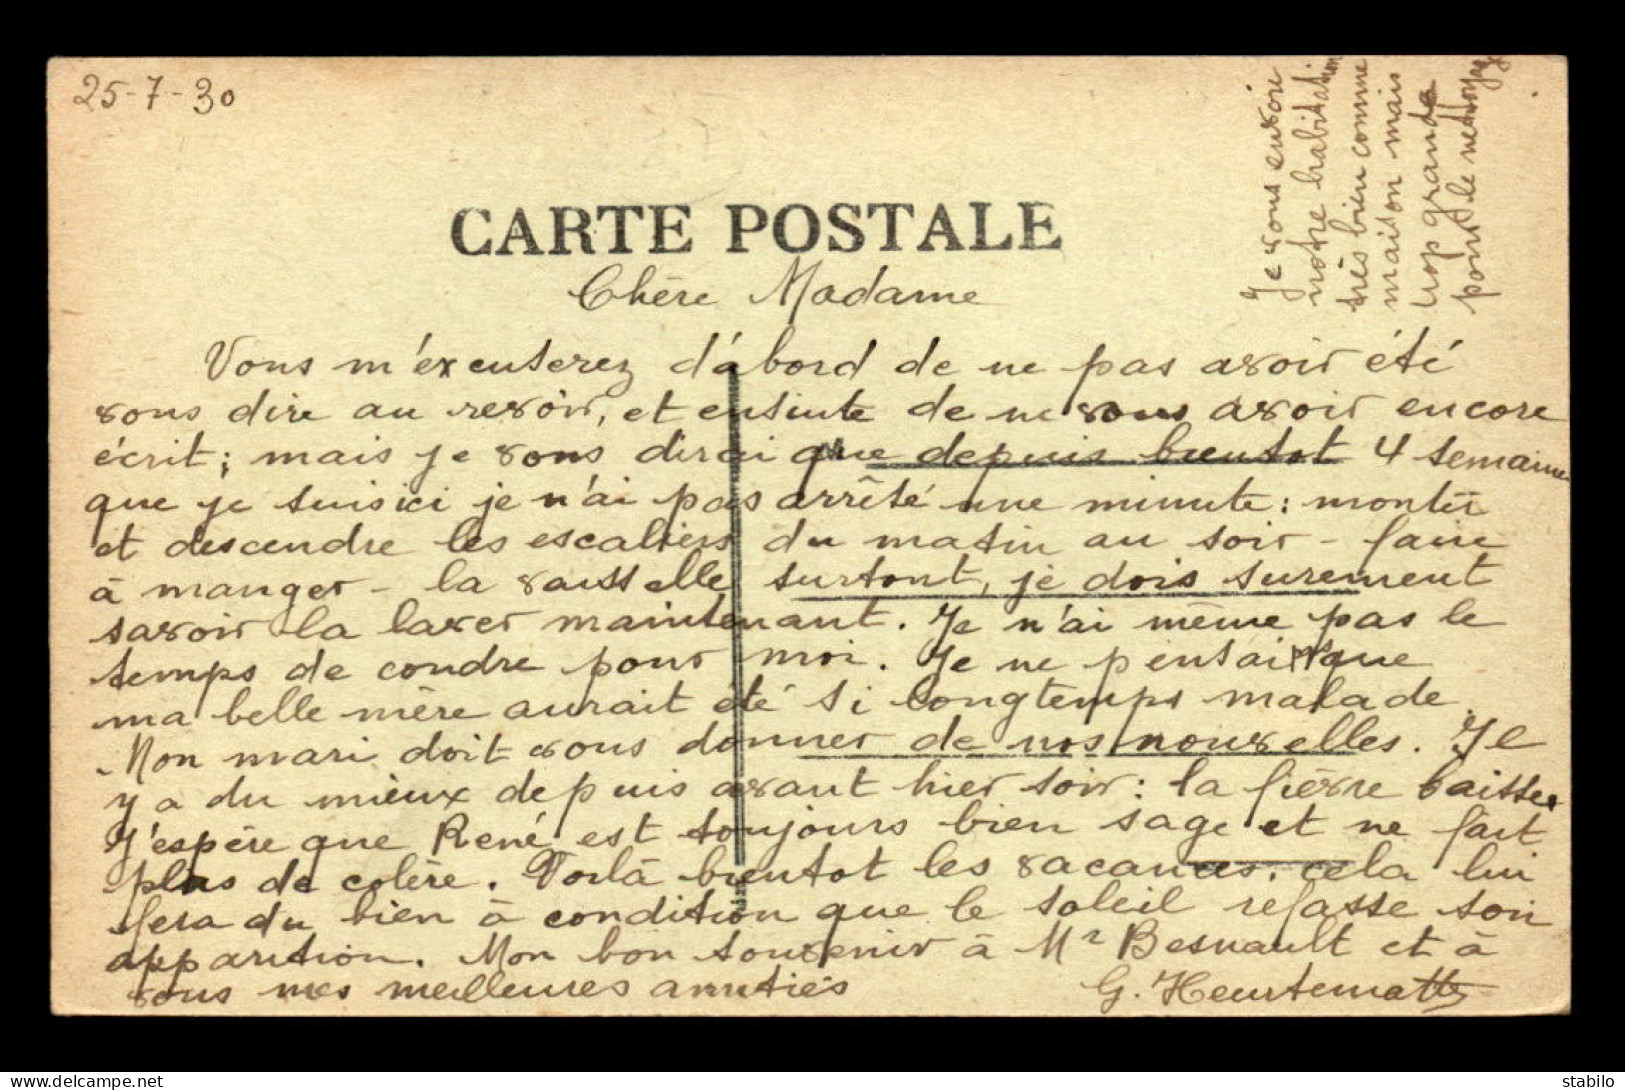 25-7-30
CARTE POSTALE
Chère Madame
Vous m'excuserez d'abord de ne pas avoir été
vous dire au revoir, et ensuite de ne vous avoir encore
écrit ; mais je vous dirai que depuis bientot 4 semaines
que je suis ici je n'ai pas arrêté une minute : monter
et descendre les escaliers du matin au soir - faire
à manger - la vaisselle surtout, je dois surement
savoir la laver maintenant. Je n'ai même pas le
temps de coudre pour moi. Je ne pensais que
ma belle mère aurait été si longtemps malade.
Mon mari doit vous donner de nos nouvelles. Il
y a du mieux depuis avant hier soir : la fièvre baisse.
J'espère que René est toujours bien sage et ne fait
plus de colère. Voilà bientot les vacances. cela lui
fera du bien à condition que le soleil refasse son
apparition. Mon bon souvenir à Mr Besnault et à
vous mes meilleures amitiés
G. Heurtematte
Je vous envoie
notre habitation
très bien comme
maison mais
trop grande
pour le nettoyage
stabilo
Delcampe.net